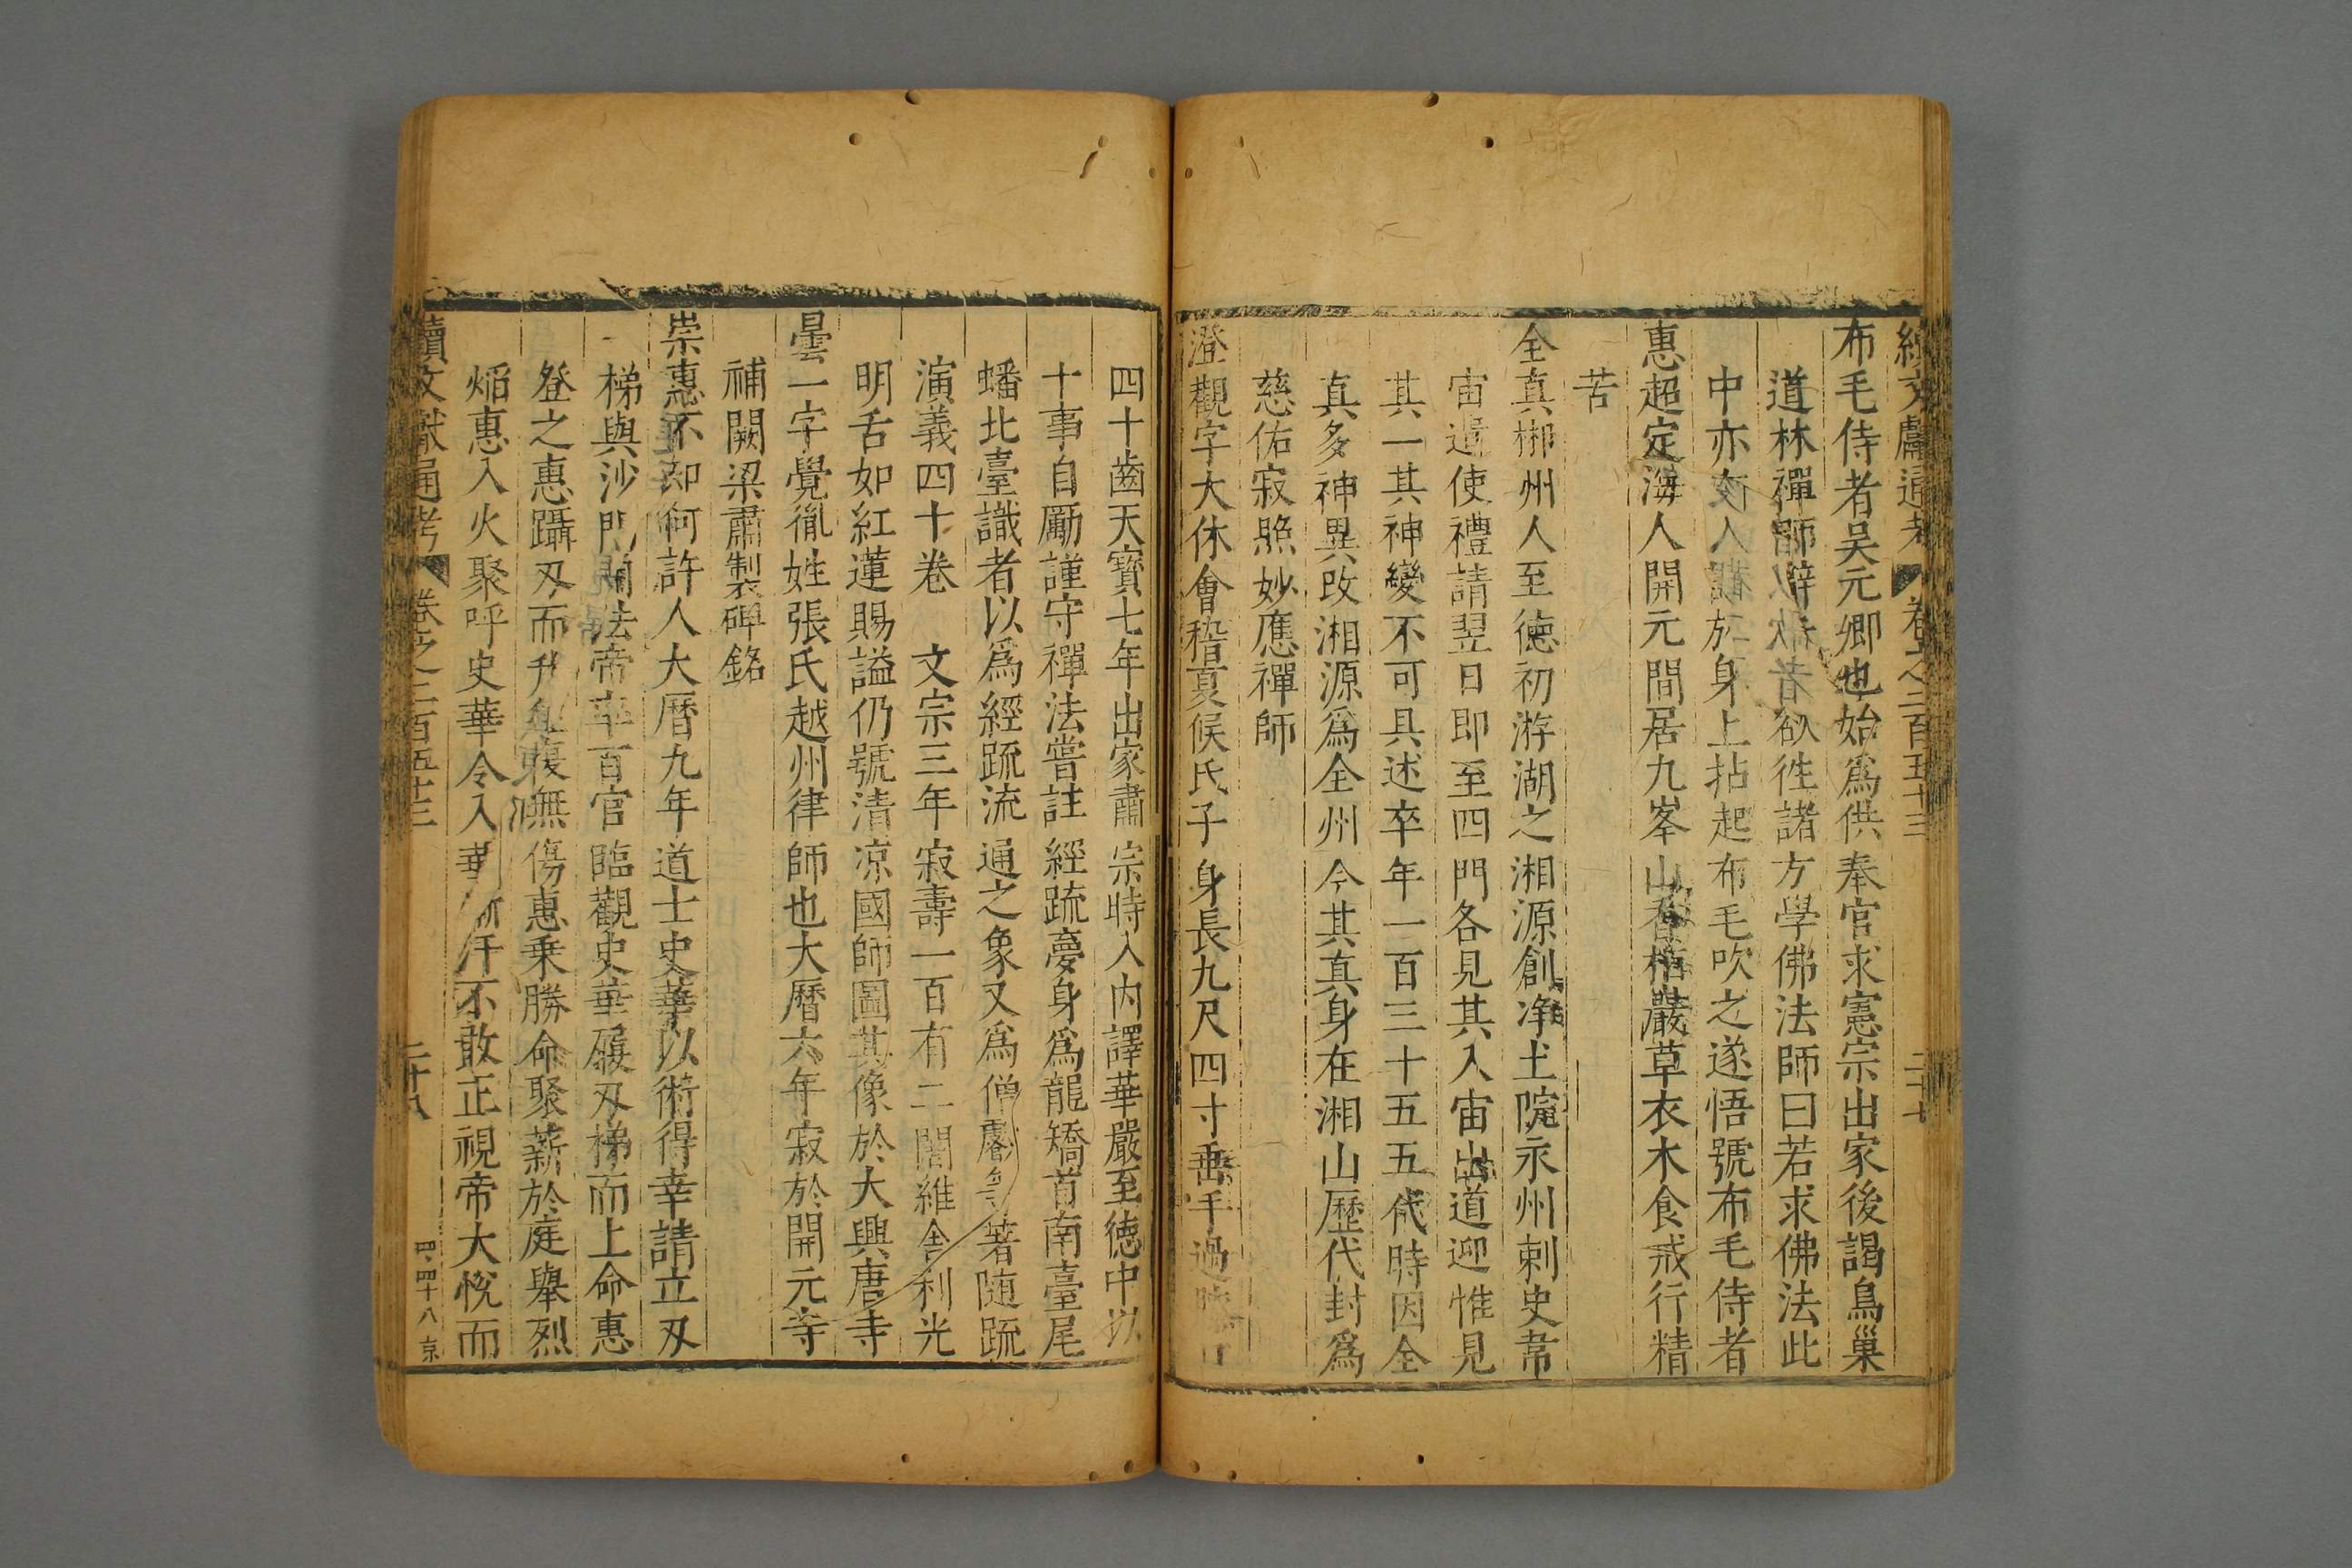 續文獻通考 卷之二百五十三 二十七
布毛侍者吴元卿也始爲供奉官求憲宗出家後謁鳥巢
道林禪師辭欲徃諸方學佛法師曰若求佛法此
中亦有人於身上拈起布毛吹之遂悟號布毛侍者
惠超定海人開元間居九峯山看栢巖草衣木食戒行精
苦
全真郴州人至德初游湖之湘源創净土院永州刺史韋
宙遣使禮請翌日即至四門各見其入宙出道迎惟見
其一其神變不可具述卒年一百三十五五代時因全
真多神異改湘源爲全州今其真身在湘山歷代封爲
慈佑寂照妙應禪師
澄觀字大休會稽夏候氏子身長九尺四寸垂手過
四十齒天寶七年出家肅宗時入内譯華嚴至德中以
十事自勵謹守禪法嘗註經疏夢身爲龍矯首南臺尾
蟠北臺識者以爲經疏流通之象又爲僧叡等著随疏
演義四十卷 文宗三年寂壽一百有二闍維舍利光
明舌如紅蓮賜謚仍號清凉國師圖其像於大興唐寺
曇一字覺胤姓張氏越州律師也大曆六年寂於開元寺
補闕梁肅製碑銘
崇惠不知何許人大曆九年道士史華以術得幸請立刄
梯與沙門鬪法帝率百官臨觀史華履刄梯而上命惠
登之惠躡刄而升無傷惠乗勝命聚薪於庭舉烈
焰惠入火聚呼史華令入華慚汗不敢正視帝大悅而
續文獻通考 卷之二百五十三 二十八 四四十八 京